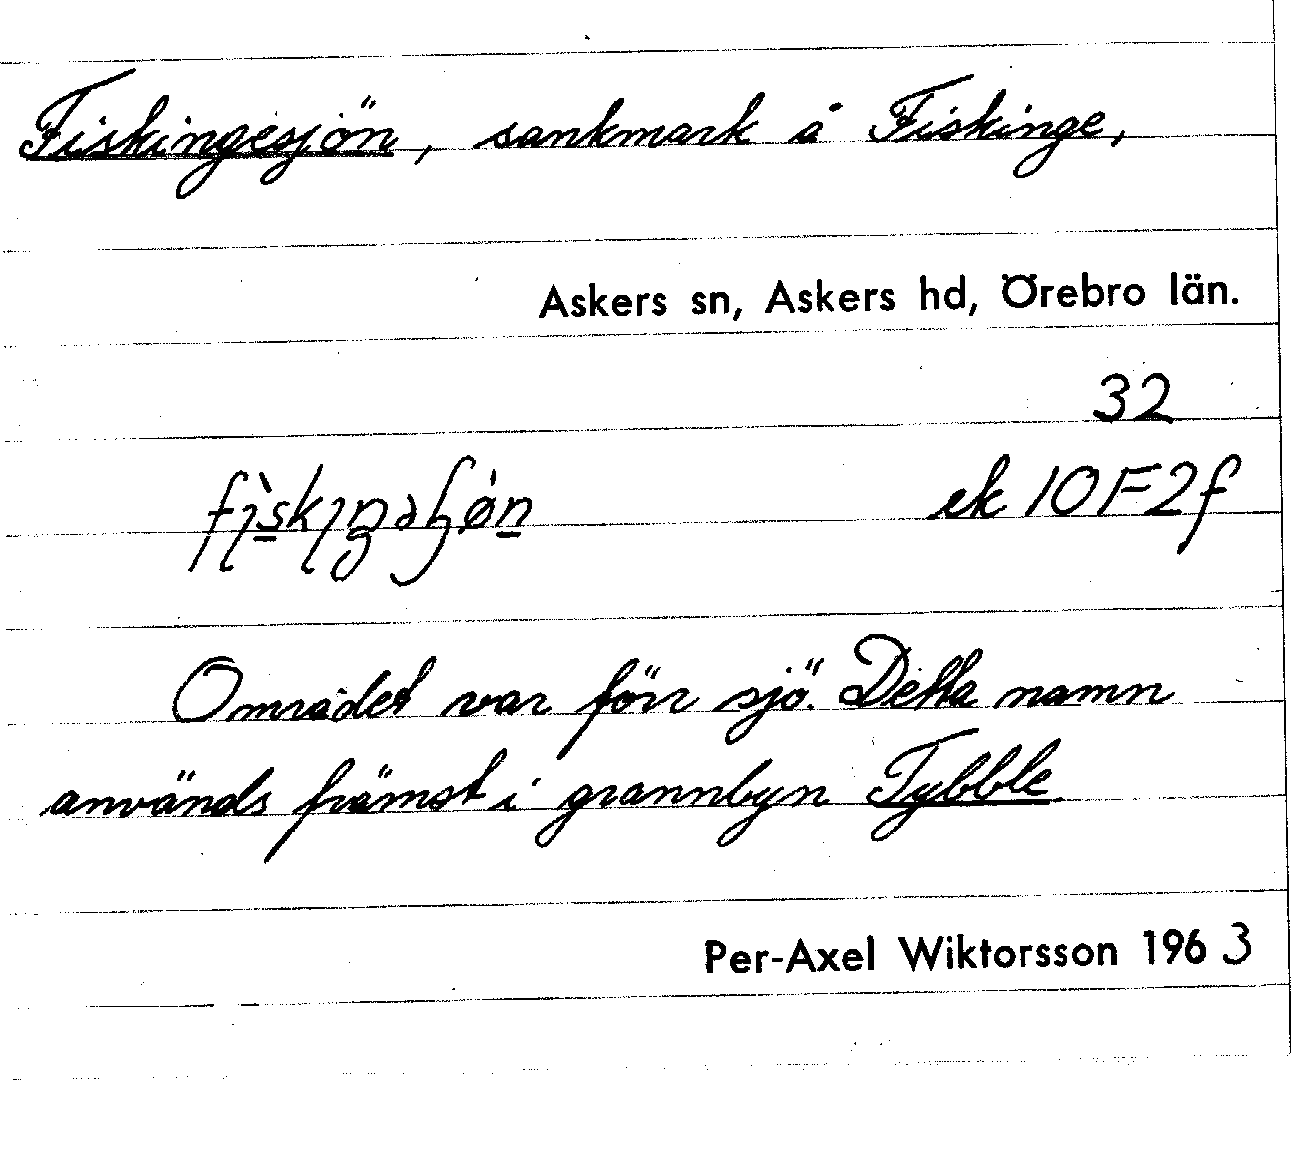 Fiskingesjön, sankmark å Fiskinge,
Askers sn, Askers hd, Örebro län.
32
ek 10F2f
Området var förr sjö. Detta namn
används främst i grannbyn Tybble
Per-Axel Wiktorsson 1963